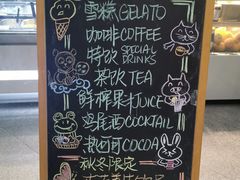 雪糕GELATO
咖啡COFFEE
特饮SPECIAL DRINKS
热饮TEA
鲜榨果汁JUICE
鸡尾酒COCKTAIL
热可可COCOA
秋冬限定